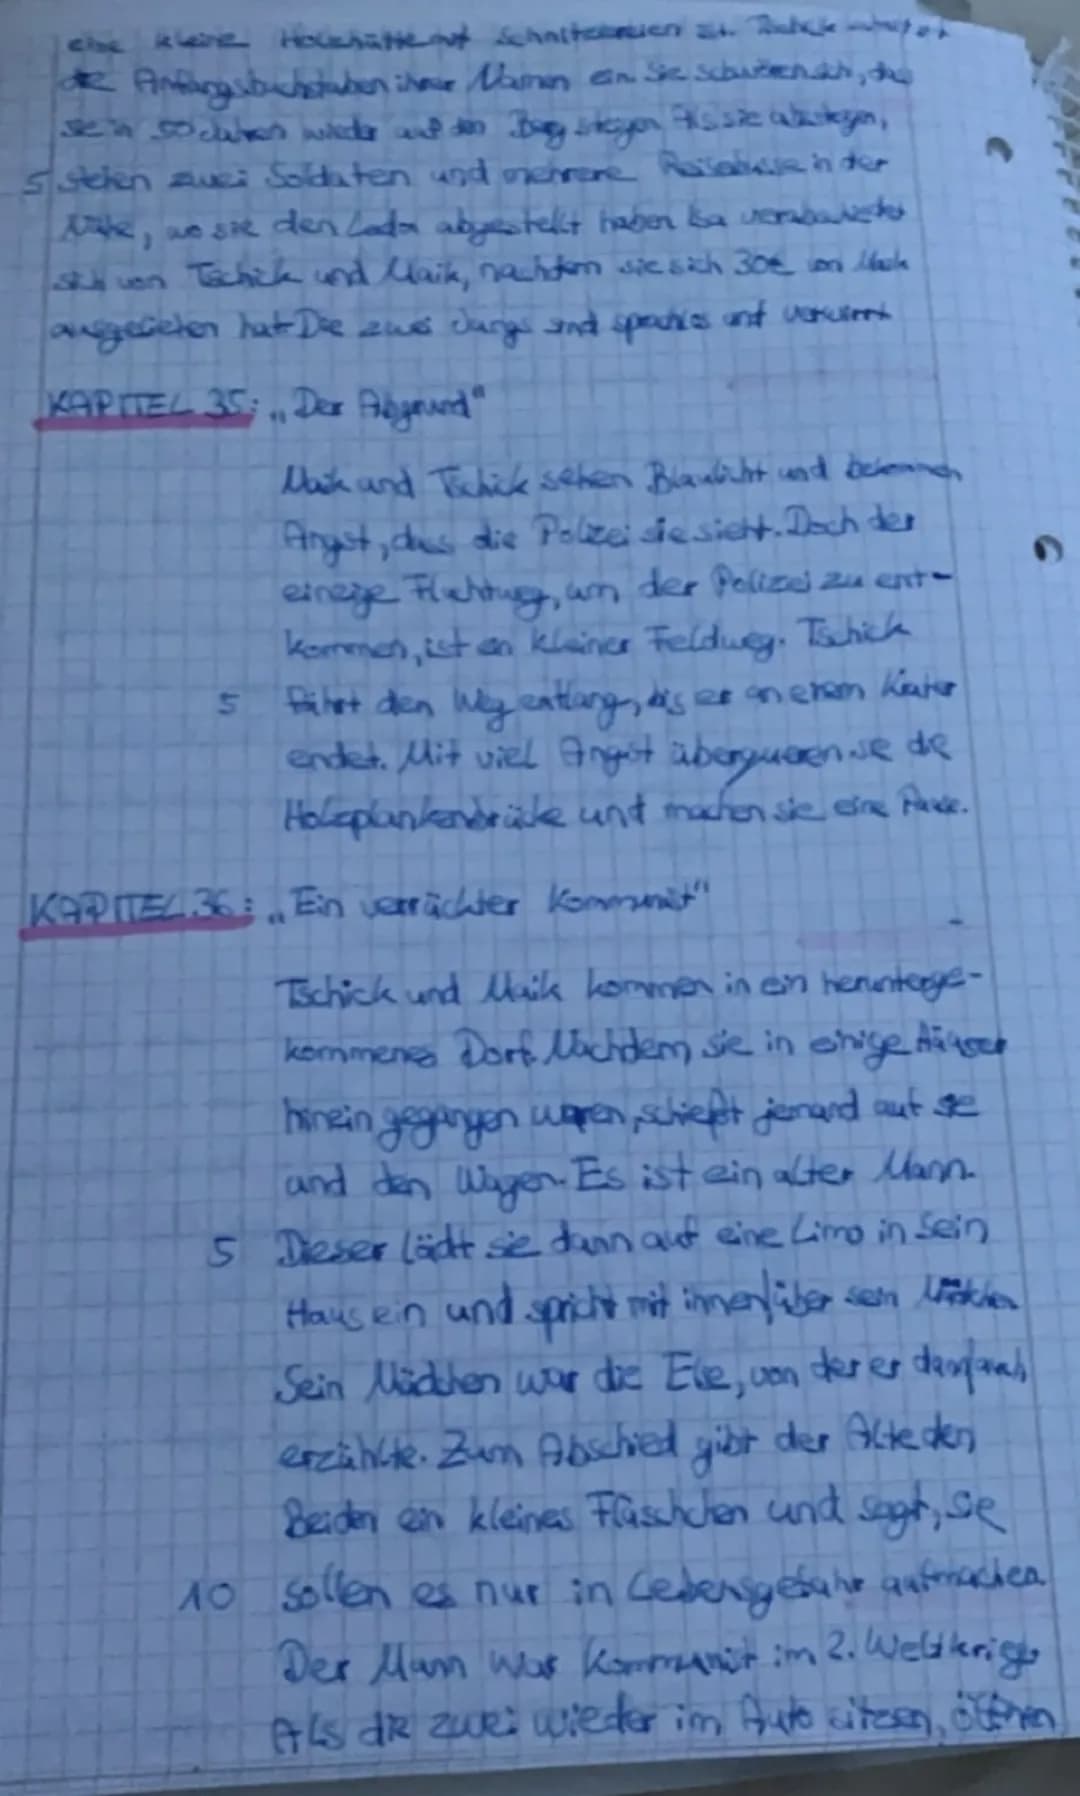 eine kleine Holzhütte mit Schnitzereien ist. Tschick
Anfangsbuchstaben ihrer Namen ein. Sie schwören sich, das
sie in 50 Jahren wieder auf den Berg steigen. Als sie absteigen,
5 stehen zwei Soldaten und mehrere Reisebusse in der
Nähe, wo sie den Lada abgestellt haben. Isa verabschiedet
sich von Tschick und Maik, nachdem sie sich 30€ von Maik
ausgeliehen hat. Die zwei Jungs sind sprachlos und verwirrt
KAPITEL 35: „Der Abgrund"
Maik und Tschick sehen Blaulicht und bekommen
Angst, das die Polizei sie sieht. Doch der
einzige Fluchtweg, um der Polizei zu ent-
kommen, ist ein kleiner Feldweg. Tschick
5 fährt den Weg entlang, bis er an einem Krater
endet. Mit viel Angst überqueren sie die
Holzplankenbrücke und machen sie eine Pause.
KAPITEL 36: „Ein verrückter Kommunist"
Tschick und Maik kommen in ein herunterge-
kommenes Dorf. Nachdem sie in einige Häuser
hinein gegangen waren, schießt jemand auf sie
und den Wagen. Es ist ein alter Mann.
5 Dieser lädt sie dann auf eine Limo in sein
Haus ein und spricht mit ihnen über sein Mädchen
Sein Mädchen war die Else, von der er danach
erzählte. Zum Abschied gibt der Alte den
Beiden ein kleines Fläschchen und sagt, sie
10 sollen es nur in Lebensgefahr aufmachen.
Der Mann war Kommunist im 2. Weltkrieg.
Als die zwei wieder im Auto sitzen, öffnen